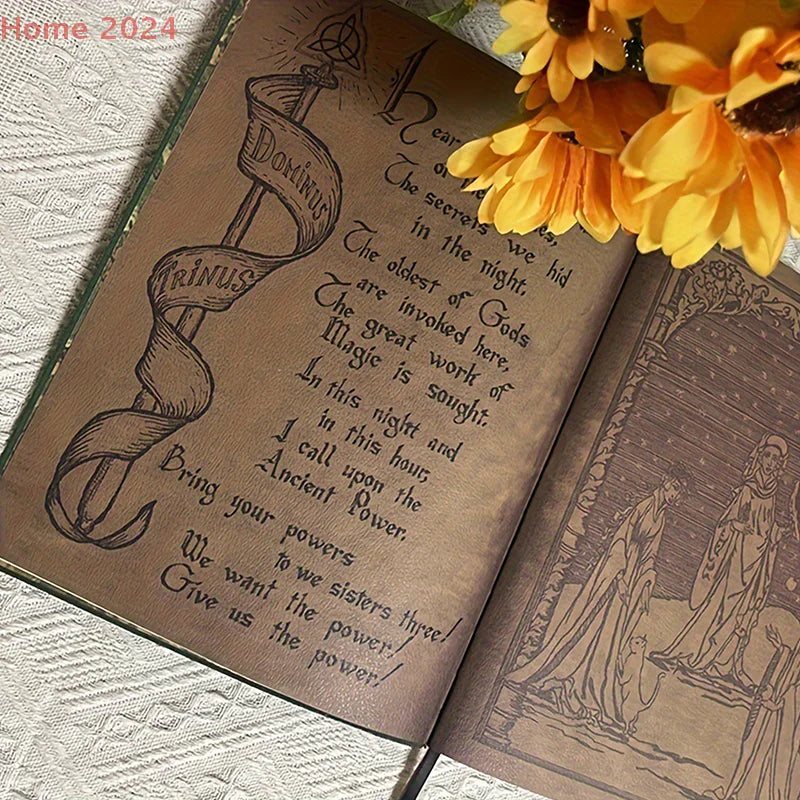 Home 2024
Dominus
Trinus
hear
The secrets we hid
in the night.
The oldest of Gods
are invoked here,
The great work of
Magic is sought.
In this night and
in this hour,
I call upon the
Ancient Power.
Bring your powers
to we sisters three!
We want the power!
Give us the power!